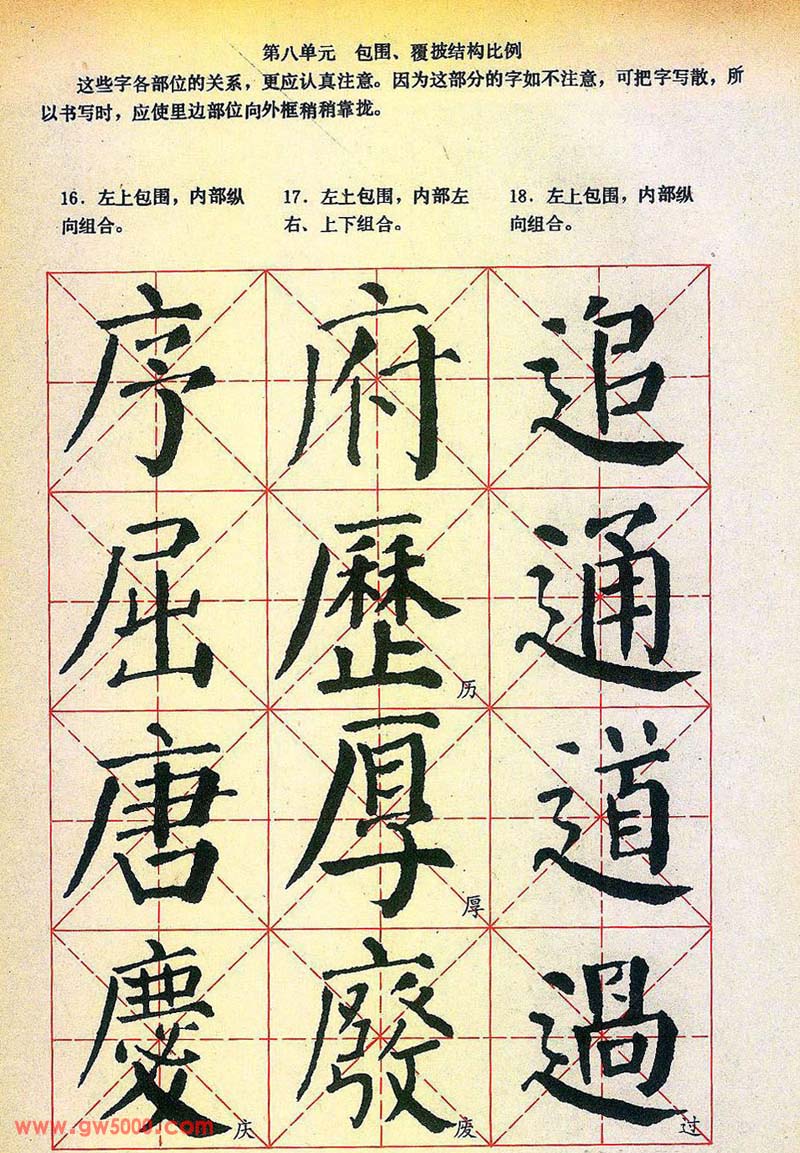 第八单元　包围、覆披结构比例
这些字各部位的关系，更应认真注意。因为这部分的字如不注意，可把字写散，所
以书写时，应使里边部位向外框稍稍靠拢。
16．左上包围，内部纵
向组合。
17．左土包围，内部左
右、上下组合。
18．左上包围，内部纵
向组合。
序 府 追
屈 歷 历 通
唐 厚 厚 道
慶 庆 廢 废 過 过
www.gw5000.com